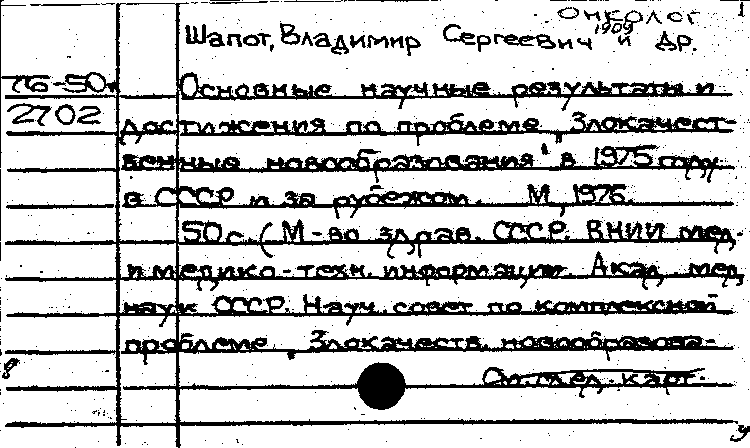 онколог 1
Шапот, Владимир Сергеевич 1909 и др.
76-50
2702
Основные научные результаты и
достижения по проблеме „Злокачест-
венные новообразования" в 1975 году
в СССР и за рубежом. М, 1976.
50с. (М-во здрав. СССР. ВНИИ мед.
и медико-техн. информации. Акад. мед.
наук СССР. Науч. совет по комплексной
проблеме „Злокачеств. новообразова-
См. след. карт.